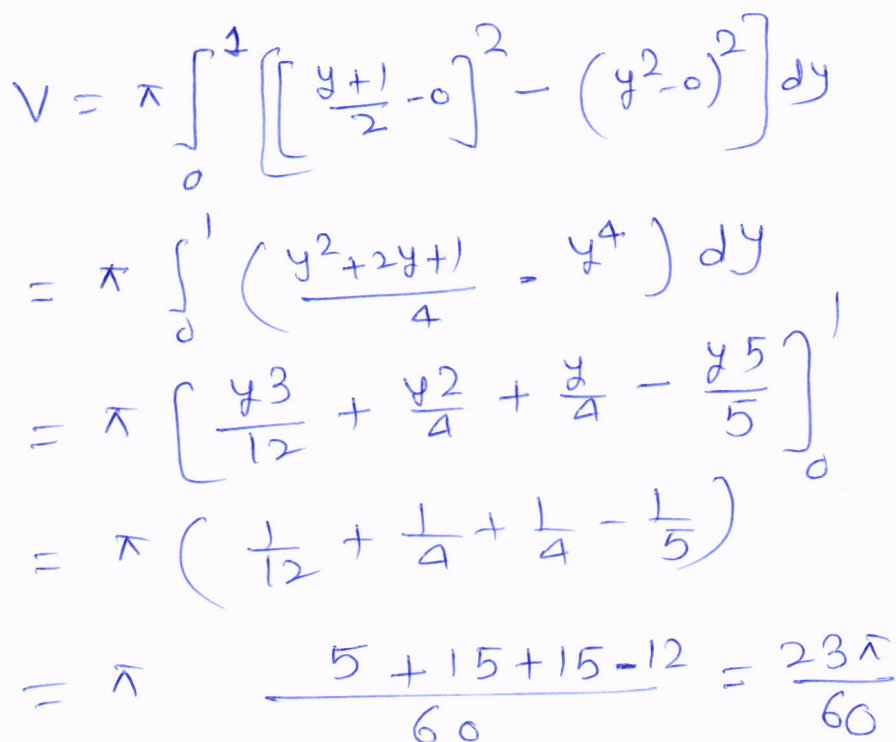 V = π ∫₀¹ [[(y+1)/2 - 0]² - (y² - 0)²] dy
= π ∫₀¹ ((y²+2y+1)/4 - y⁴) dy
= π [y3/12 + y2/4 + y/4 - y5/5]₀¹
= π (1/12 + 1/4 + 1/4 - 1/5)
= π (5+15+15-12)/60 = 23π/60